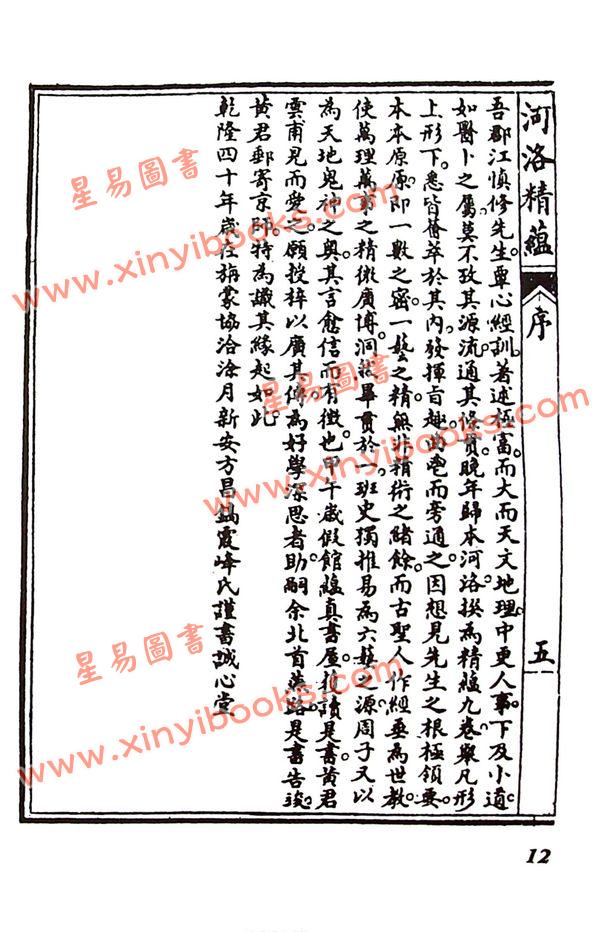 河洛精蘊 序 五
吾郡江慎修先生覃心經訓。著述極富。而大而天文地理。中更人事。下及小道。
如醫卜之屬莫不攷其源流通其條貫。晚年歸本河洛撰為精蘊九卷。舉凡形
上形下。悉皆薈萃於其內。發揮旨趣。曲鬯而旁通之。因想見先生之根極領要。
本本原原。即一數之密。一藝之精。無非精術之緒餘。而古聖人作經垂為世教。
使萬理萬事之精微廣博。洞徹畢貫於一。班史獨推易為六藝之源。周子又以
為天地鬼神之奧。其言愈信而有徵也。甲午歲假館蘊真書屋。獲讀是書。黃君
雲甫見而愛之。願授梓以廣其傳。為好學深思者助。嗣余北首燕路。是書告竣。
黃君郵寄京師。特為識其緣起如此。
乾隆四十年歲在旃蒙協洽涂月新安方昌霞峰氏謹書誠心堂
12
星易圖書
www.xinyibooks.com
星易圖書
www.xinyibooks.com
星易圖書
www.xinyibooks.com